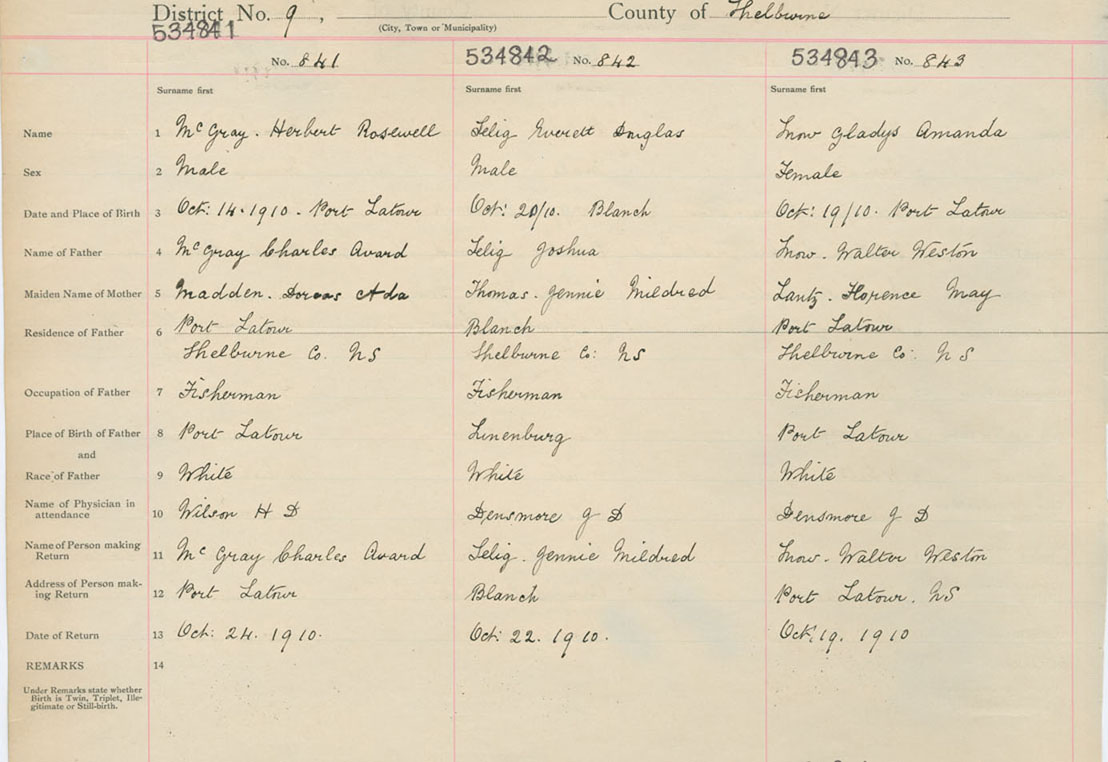 District No. 9, County of Shelburne
(City, Town or Municipality)
534841
No. 841 534842 No. 842 534843 No. 843
Surname first Surname first Surname first
Name 1 McGray. Herbert Rosewell Selig Everett Douglas Snow Gladys Amanda
Sex 2 Male Male Female
Date and Place of Birth 3 Oct: 14. 1910. Port Latour Oct: 20/10. Blanch Oct: 19/10. Port Latour
Name of Father 4 McGray Charles Avard Selig Joshua Snow. Walter Weston
Maiden Name of Mother 5 Madden. Dorcas Ada Thomas. Jennie Mildred Lantz. Florence May
Residence of Father 6 Port Latour Blanch Port Latour
Shelburne Co. NS Shelburne Co: NS Shelburne Co: NS
Occupation of Father 7 Fisherman Fisherman Fisherman
Place of Birth of Father 8 Port Latour Lunenburg Port Latour
and
Race of Father 9 White White White
Name of Physician in
attendance 10 Wilson H D Densmore J D Densmore J D
Name of Person making
Return 11 McGray Charles Avard Selig. Jennie Mildred Snow. Walter Weston
Address of Person mak-
ing Return 12 Port Latour Blanch Port Latour. NS
Date of Return 13 Oct: 24. 1910. Oct: 22. 1910. Oct: 19. 1910
REMARKS 14
Under Remarks state whether
Birth is Twin, Triplet, Ille-
gitimate or Still-birth.